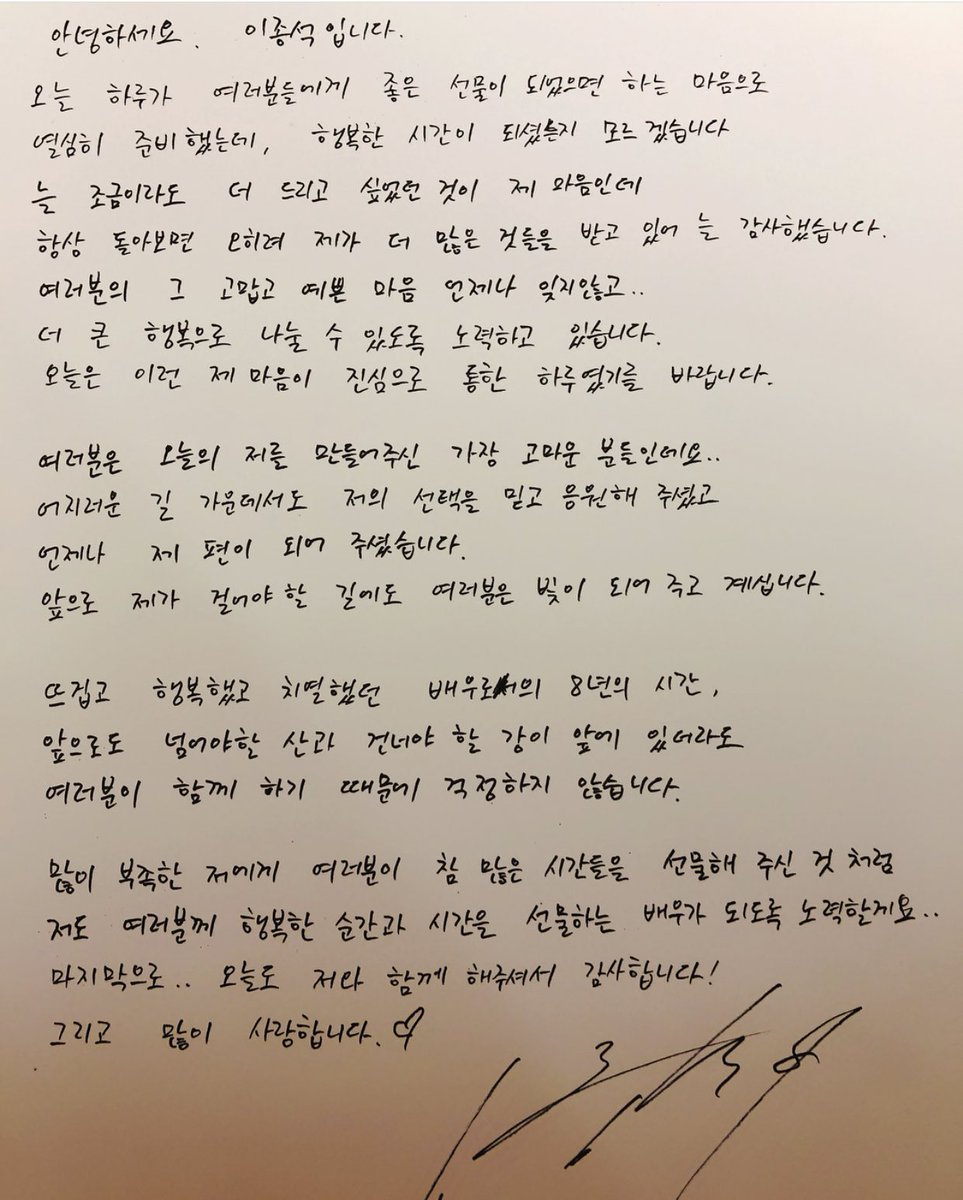 안녕하세요. 이종석입니다.
오늘 하루가 여러분들에게 좋은 선물이 되었으면 하는 마음으로
열심히 준비했는데, 행복한 시간이 되셨는지 모르겠습니다
늘 조금이라도 더 드리고 싶었던 것이 제 마음인데
항상 돌아보면 오히려 제가 더 많은 것들을 받고 있어 늘 감사했습니다.
여러분의 그 고맙고 예쁜 마음 언제나 잊지않고..
더 큰 행복으로 나눌 수 있도록 노력하고 있습니다.
오늘은 이런 제 마음이 진심으로 통한 하루였기를 바랍니다.
여러분은 오늘의 저를 만들어주신 가장 고마운 분들인데요..
어지러운 길 가운데서도 저의 선택을 믿고 응원해 주셨고
언제나 제 편이 되어 주셨습니다.
앞으로 제가 걸어야 할 길에도 여러분은 빛이 되어 주고 계십니다.
뜨겁고 행복했고 치열했던 배우로서의 8년의 시간,
앞으로도 넘어야할 산과 건너야 할 강이 앞에 있더라도
여러분이 함께 하기 때문에 걱정하지 않습니다.
많이 부족한 저에게 여러분이 참 많은 시간들을 선물해 주신 것 처럼
저도 여러분께 행복한 순간과 시간을 선물하는 배우가 되도록 노력할게요..
마지막으로.. 오늘도 저와 함께 해주셔서 감사합니다!
그리고 많이 사랑합니다.♡